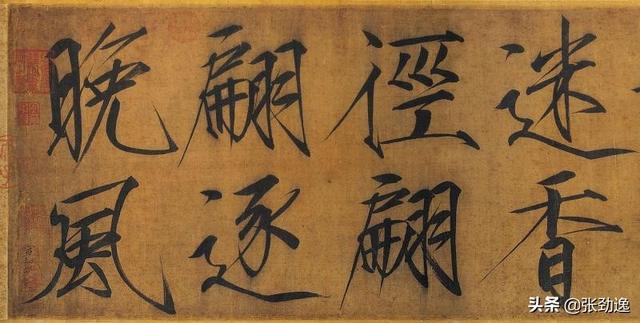 迷香
徑翩
翩逐
晚風
头条 @张劲逸